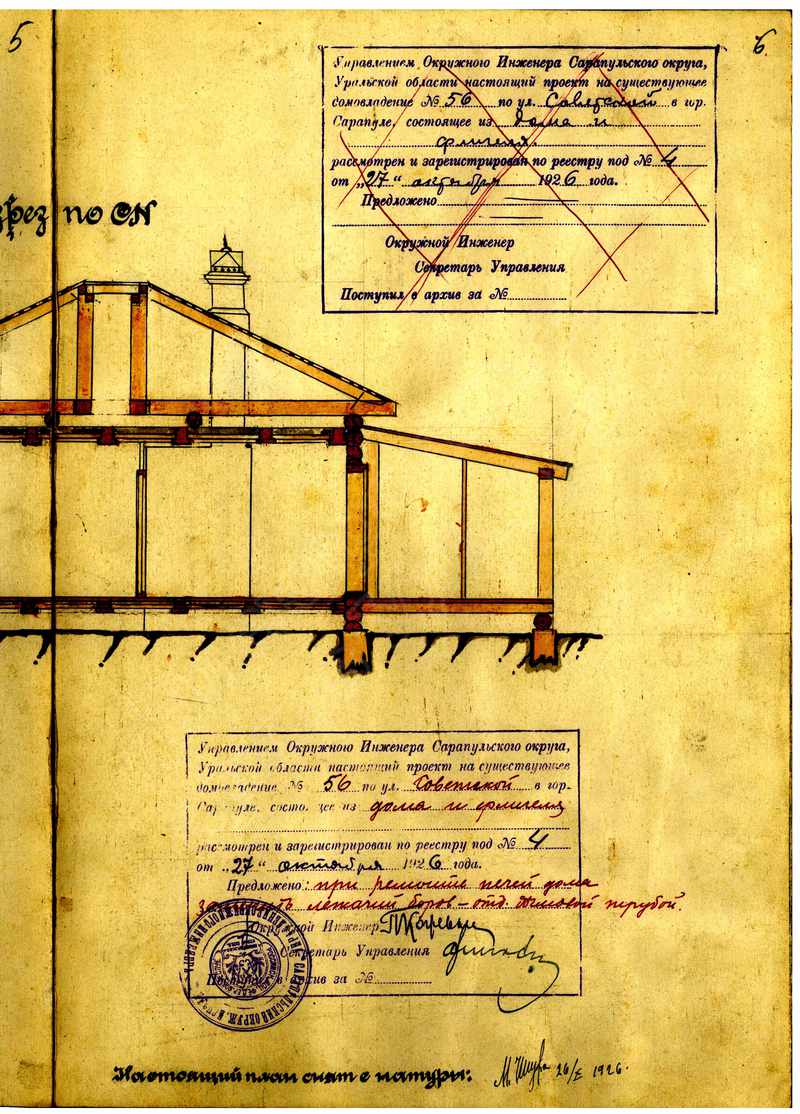 5
6.
Управлением Окружного Инженера Сарапульского округа,
Уральской области настоящий проект на существующее
домовладение № 56 по ул. Советской в гор.
Сарапуле, состоящее из дома и
флигеля.
рассмотрен и зарегистрирован по реестру под № 4
от „27“ октября 1926 года.
Предложено
Окружной Инженер
Секретарь Управления
Поступил в архив за №
зрез по CN
Управлением Окружного Инженера Сарапульского округа,
Уральской области настоящий проект на существующее
домовладение № 56 по ул. Советской в гор.
Сарапуле, состоящее из дома и флигеля
рассмотрен и зарегистрирован по реестру под № 4
от „27“ октября 1926 года.
Предложено: при ремонте печей дома
заменить лежачий боров – отд. дымовой трубой.
Окружной Инженер
Секретарь Управления
Поступил в архив за №
Настоящий план снят с натуры:
26/X 1926.